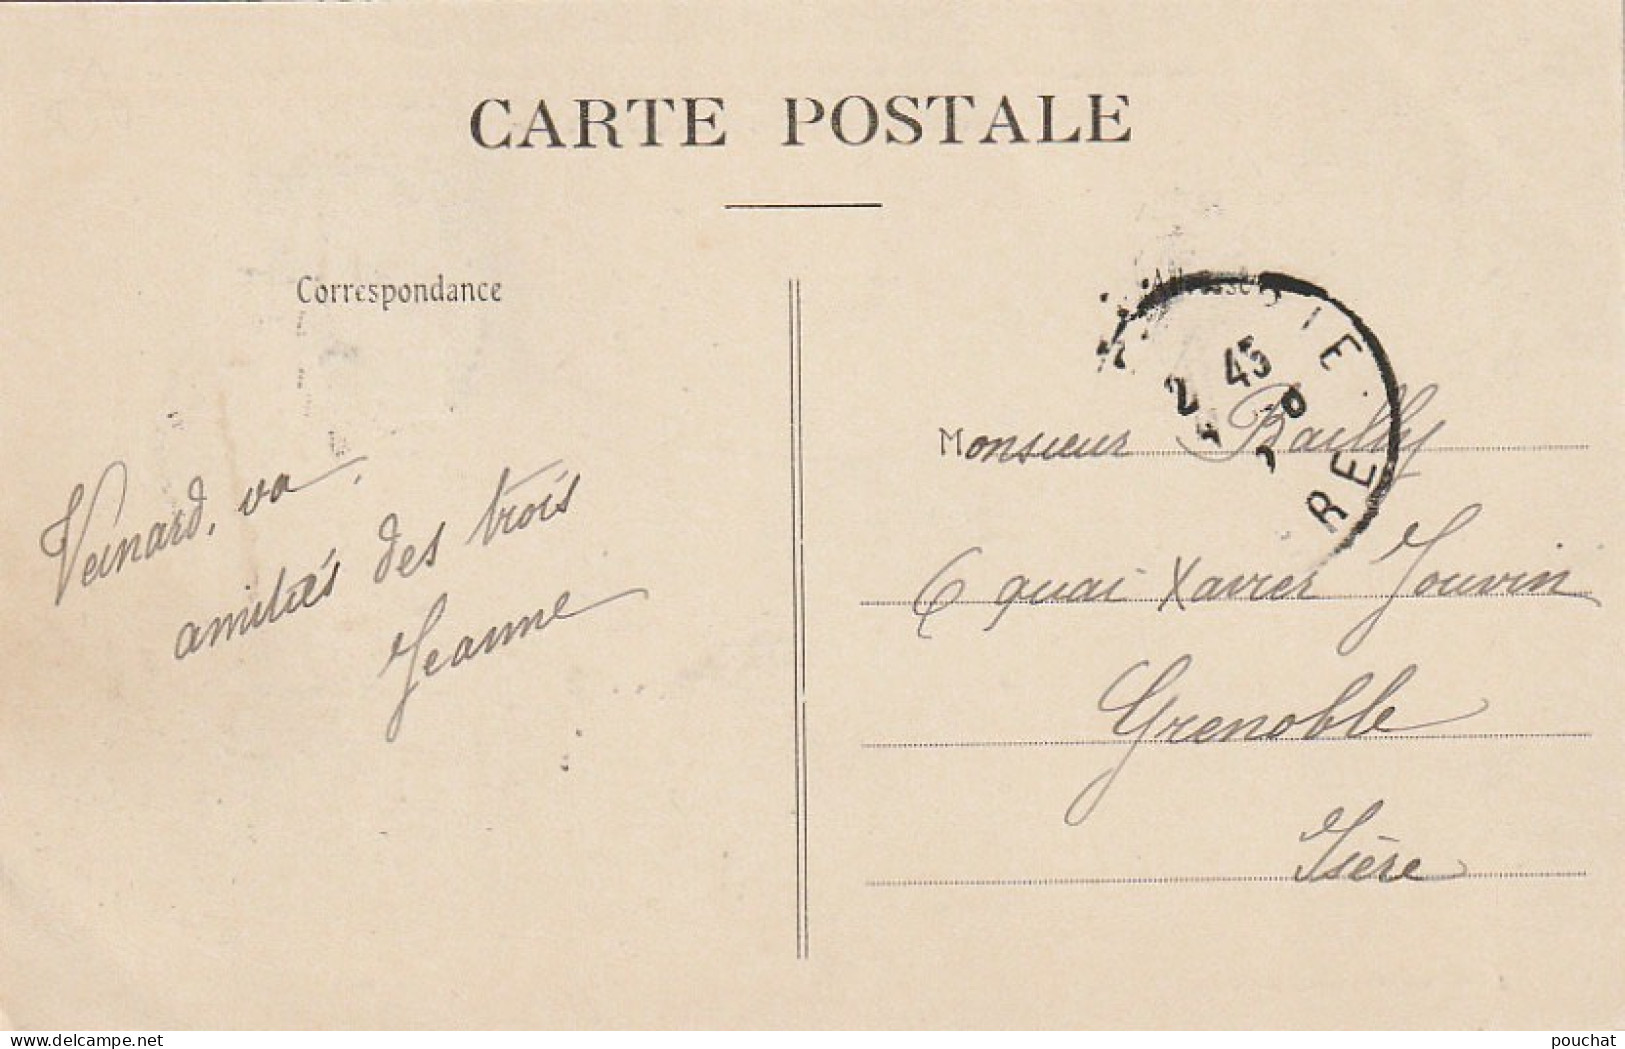 CARTE POSTALE
Correspondance
Veinard, va,
amitiés des trois
Jeanne
2 45
IE
RE
Monsieur Bailly
6 quai Xavier Jouvin
Grenoble
Isère
www.delcampe.net
pouchat